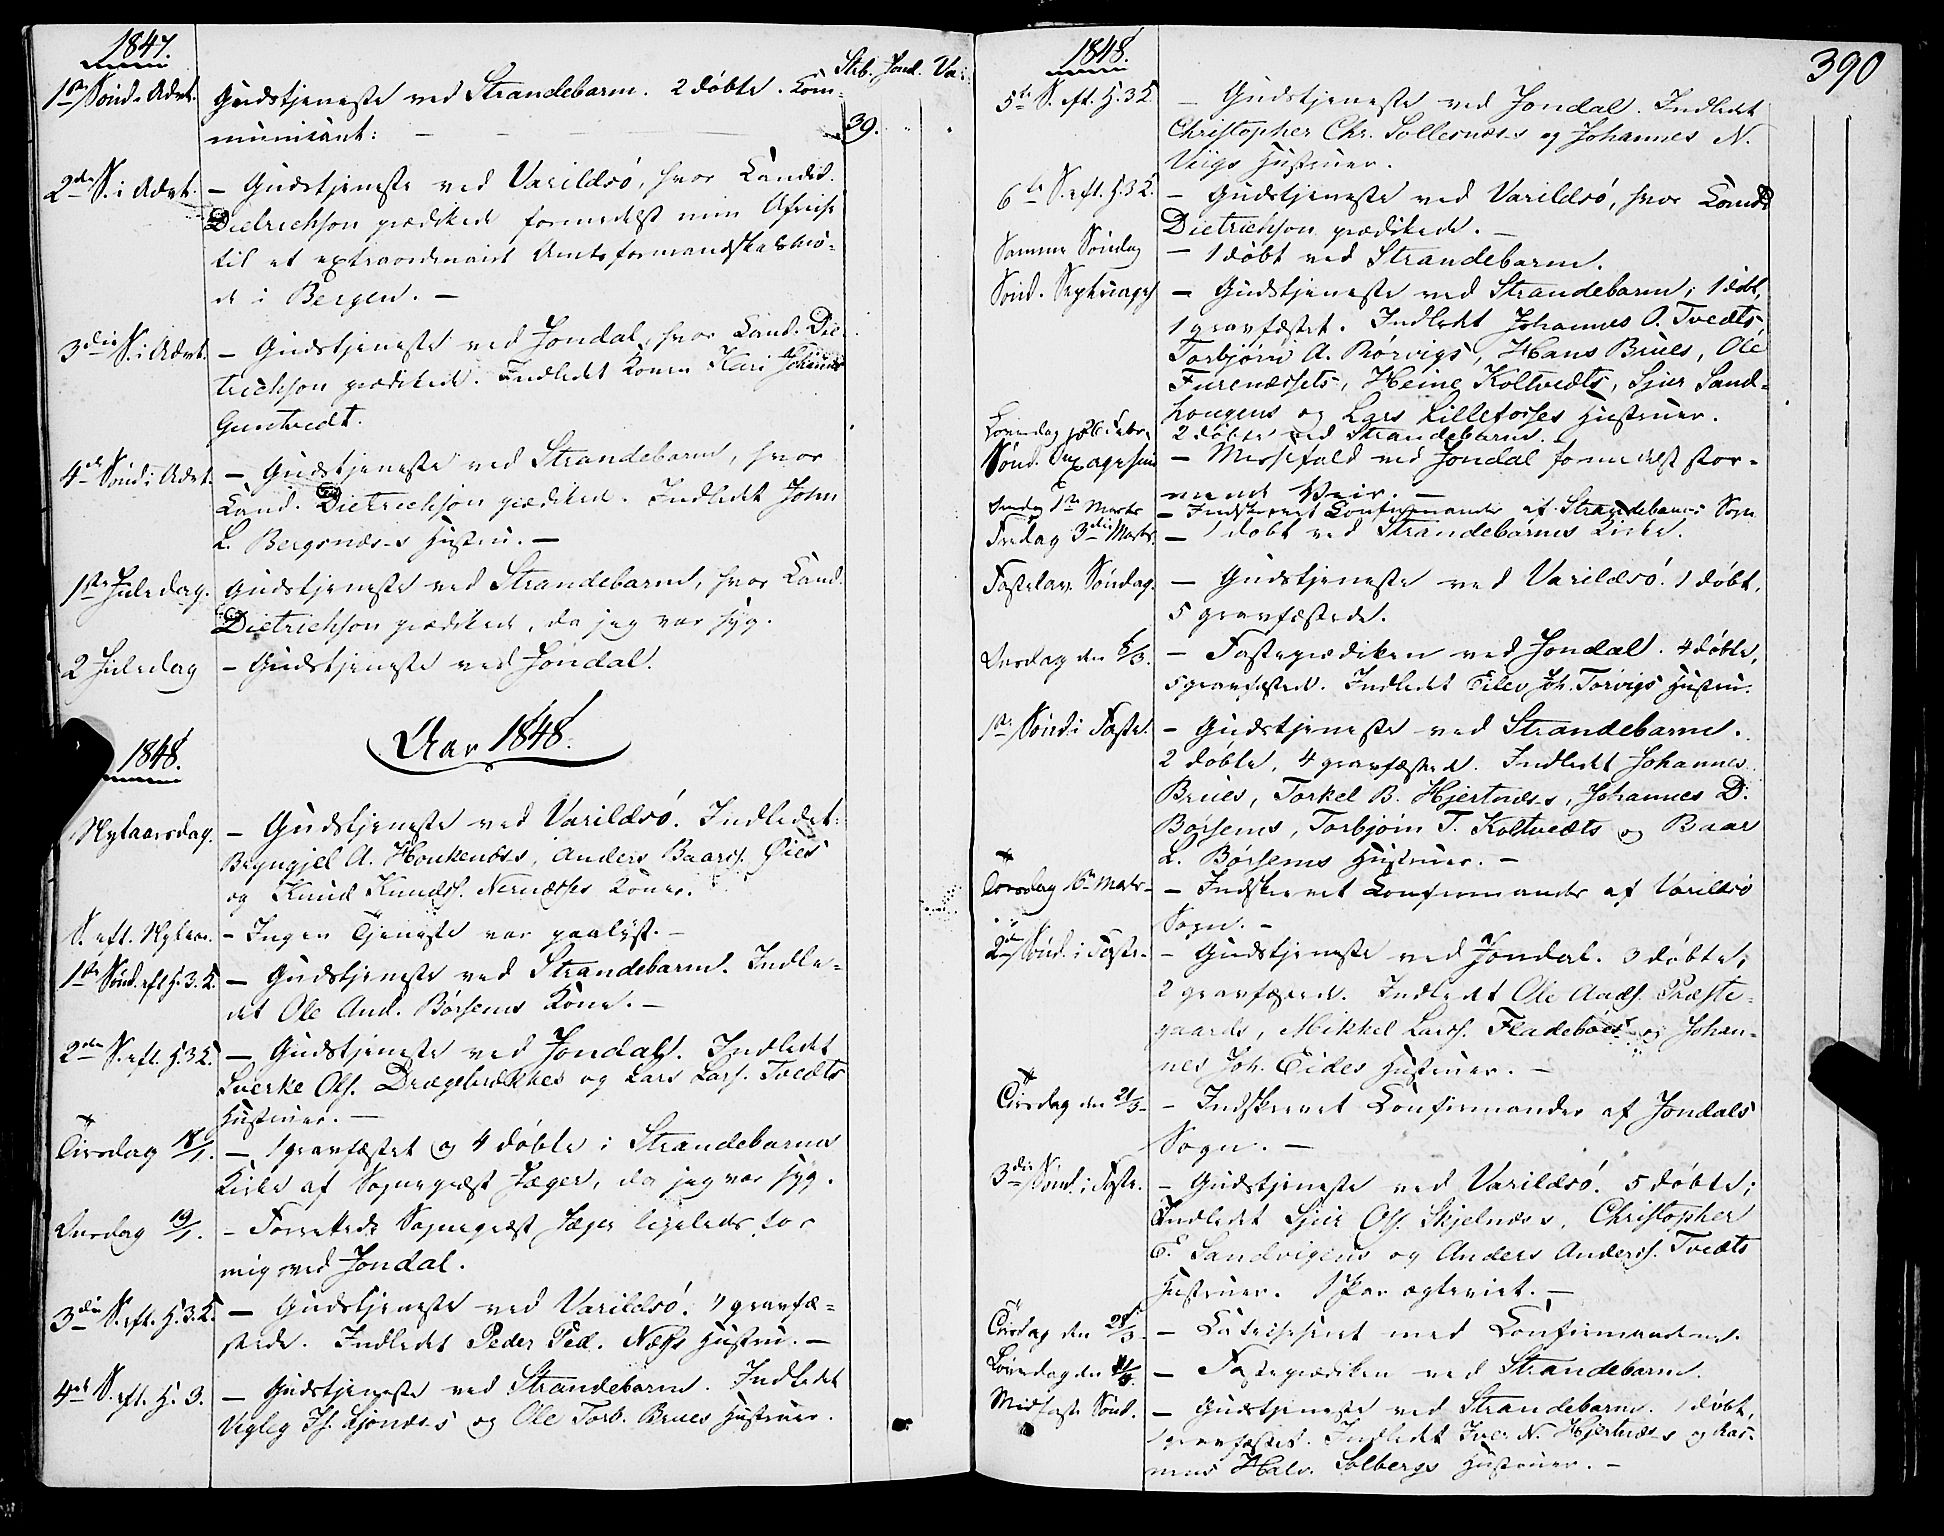 1847.
Stb. Jond. Va.
1ste Sønd. Advt. Gudstjeneste ved Strandebarm. 2 døbte. Com-
municant: — — — 39. " "
2den S. i Advt. — Gudstjeneste ved Varildsö, hvor Candid.
Dietrichson prædikede formedelst min Afreise
til et extraordinairt Amtsformandskabsmø-
de i Bergen. —
3die S. i Advt. — Gudstjeneste ved Jondal, hvor Cand. Die-
trichson prædikede. Indledet Konen Kari Johannes
Guntvedt.
4de Sønd. i Advt. — Gudstjeneste ved Strandebarm, hvor
Cand. Dietrichson prædikede. Indledet John
L. Bergsnæs's Hustru. —
1ste Juledag. Gudstjeneste ved Strandebarm, hvor Cand.
Dietrichson prædikede, da jeg var syg.
2 Juledag — Gudstjeneste ved Jondal.
Aar 1848.
1848.
Nytaarsdag. — Gudstjeneste ved Varildsö. Indledet:
Bryngjel A. Honkenæs, Anders Baars. Øies
og Knud Knuds. Nernæsses Koner.
S. eft. Nytaar. — Ingen Tjeneste var paalyst. —
1ste Sønd. eft. H. 3. K. — Gudstjeneste ved Strandebarm. Indle-
det Ole And. Børsems Kone. —
2den S. eft. H. 3 K. — Gudstjeneste ved Jondal. Indledet
Sverke Ols. Drægebrækkes og Lars Lars. Tvedts
Hustruer. —
Tirsdag 18/1. — 1 gravfæstet og 4 døbte i Strandebarms
Kirke af Sognepræst Jæger, da jeg var syg.
Onsdag 19/1. — Forrettede Sognepræst Jæger ligeledes for
mig ved Jondal.
3die S. eft. H. 3 K. — Gudstjeneste ved Varildsö. 4 gravfæ-
stede. Indledet Peder Ped. Næss Hustru. —
4de S. eft. H. 3. — Gudstjeneste ved Strandebarm. Indledet
Vigleg Is. Ljonæs's og Ole Torb. Brues Hustruer.
1848.
390
5te S. eft. H. 3 K. — Gudstjeneste ved Jondal. Indledet
Christopher Chr. Sollesnæs's og Johannes N.
Viigs Hustruer.
6te S. eft. H. 3 K. — Gudstjeneste ved Varildsö, hvor Cand.
Dietrichson prædikede. —
Samme Søndag — 1 døbt ved Strandebarm.
Sønd. Septuages. — Gudstjeneste ved Strandebarm; 1 døbt,
1 gravfæstet. Indledet Johannes O. Tvedts,
Torbjørn A. Rørvigs, Hans Brues, Ole
Furenæssets, Heine Koltvedts, Sjur Sand-
hougens og Lars Lillefosses Hustruer.
Løverdag 26 Febr. 2 døbte ved Strandebarm.
Sønd. Sexagesima — Messefald ved Jondal formedelst stor-
mende Veir. —
Onsdag 1ste Marts — Indskrevet Confirmander af Strandebarms Sogn
Fredag 3die Marts. — 1 døbt ved Strandebarms Kirke.
Fastelav. Søndag. — Gudstjeneste ved Varildsö. 1 døbt,
5 gravfæstede.
Onsdag den 8/3. — Fasteprædiken ved Jondal. 4 døbte,
5 gravfæstede. Indledet Eilev Joh. Torvigs Hustru.
1ste Sønd. i Faste. — Gudstjeneste ved Strandebarm.
2 døbte, 4 gravfæstede. Indledet Johannes
Brues, Torkel B. Hjertnæs's, Johannes D.
Børsems, Torbjörn T. Koltvedts og Baar
L. Børsems Hustruer. —
Torsdag 16de Marts — Indskrevet Confirmander af Varildsö
Sogn. —
2den Sønd. i Faste. — Gudstjeneste ved Jondal. 3 døbte;
2 gravfæstede. Indledet Ole Ands. Præste-
gaards, Mikkel Lars. Fladebøes og Johan-
nes Joh. Eides Hustruer. —
Tirsdag den 21/3 — Indskrevet Confirmander af Jondals
Sogn. —
3die Sønd. i Faste. — Gudstjeneste ved Varildsö. 5 døbte;
Indledet Sjur Ols. Skjelnæs's, Christopher
E. Sandvigens og Anders Anders. Tvedts
Hustruer. 1 Par ægteviet. —
Tirsdag den 28/3 — Catechiseret med Confirmanderne.
Løverdag den — Fasteprædiken ved Strandebarm.
Midfaste Sønd. — Gudstjeneste ved Strandebarm. 1 døbt,
1 gravfæstet. Indledet Iver N. Hjertnæs's og Ras-
mus Halv. Solbergs Hustruer. —